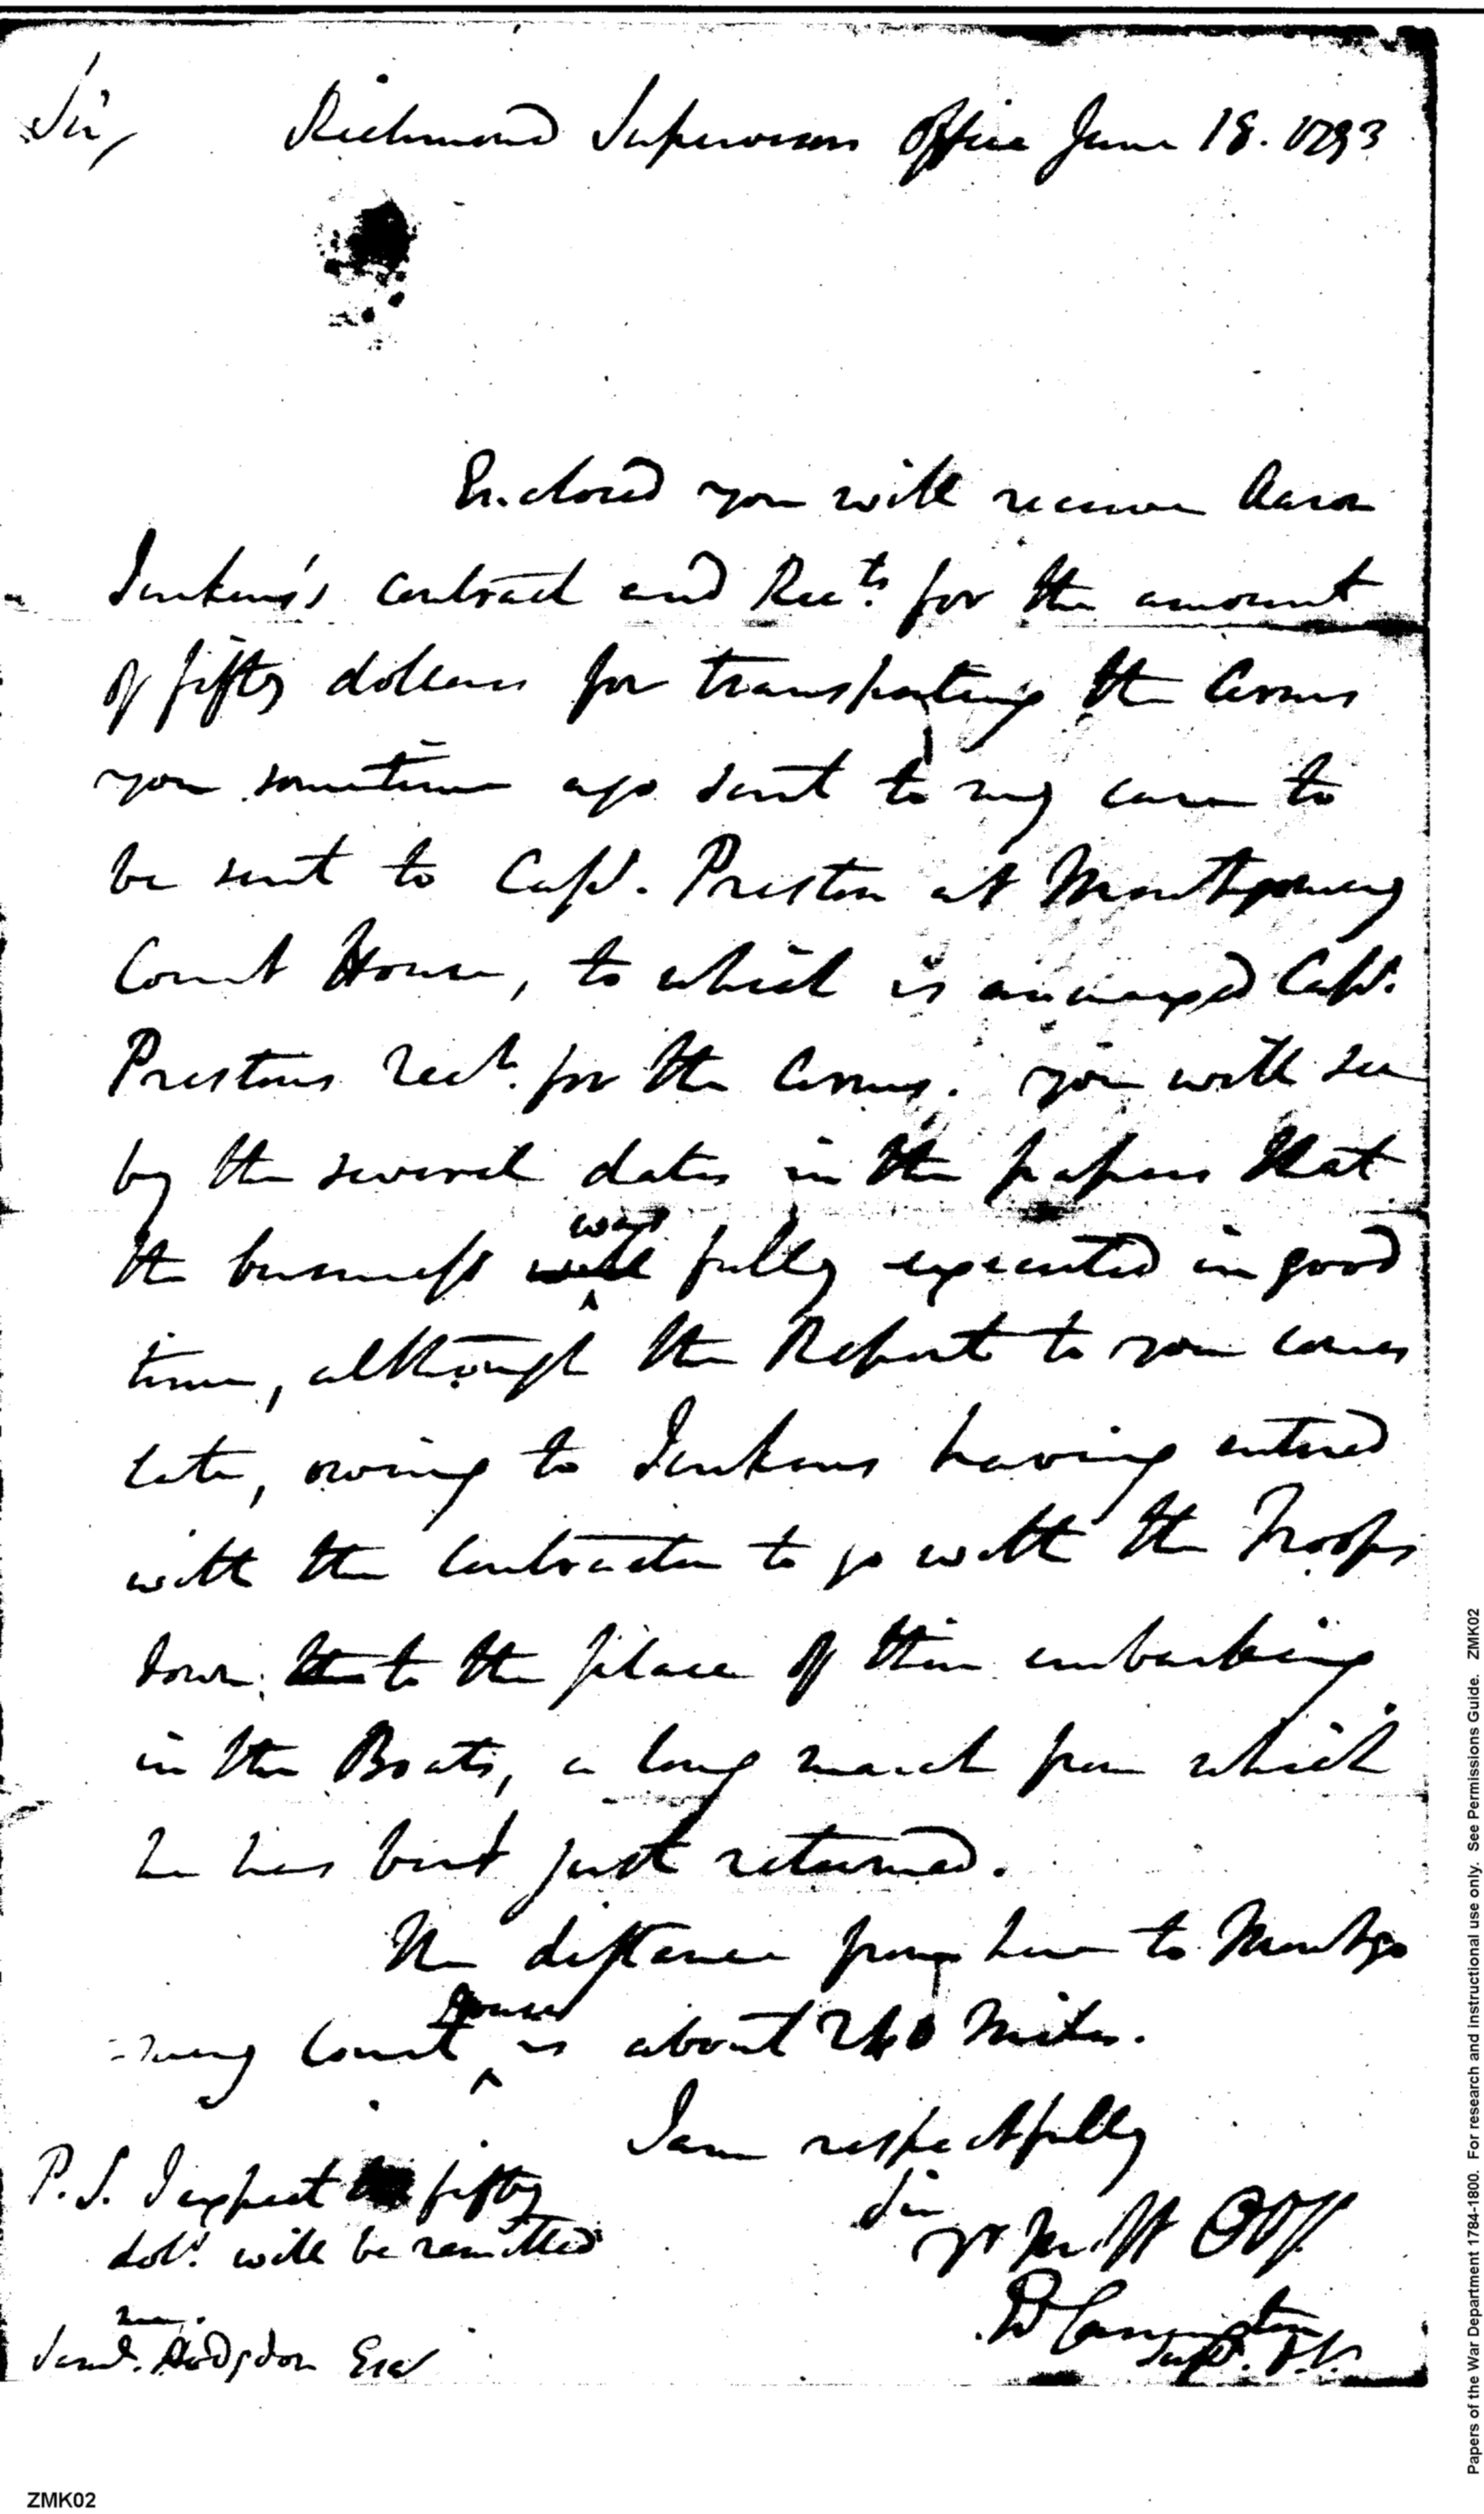 Sir, Richmond Supervisors office June 18. 1793
Enclosed you will receive Aaron
Jenkins's contract and Recᵗˢ. for the amount
of fifty dollars for transporting the Arms
you sometime ago sent to my care to
be sent to Capt. Preston at Montgomery
Court House, to which is annexed Capt.
Prestons rect. for the Arms. you will see
by the several dates in the papers that
was
the business will fully executed in good
time, although the Report to you comes
late, owing to Jenkins having entered
with the Contractor to go with the Troops
down to the place of their embarking
in the Boats, a long march from which
he has but just returned.
The distance from here to Montgo
House
-mery Court ^ is about 240 Miles.
I am respectfully
Sir
P.S. I expect fifty
yr Mo. Ob
dolˢ. will be remitted
D Carrington
me.
Supr. D.V.
Saml. Hodgdon Esq
Papers of the War Department 1784-1800. For research and instructional use only. See Permissions Guide. ZMK02
ZMK02